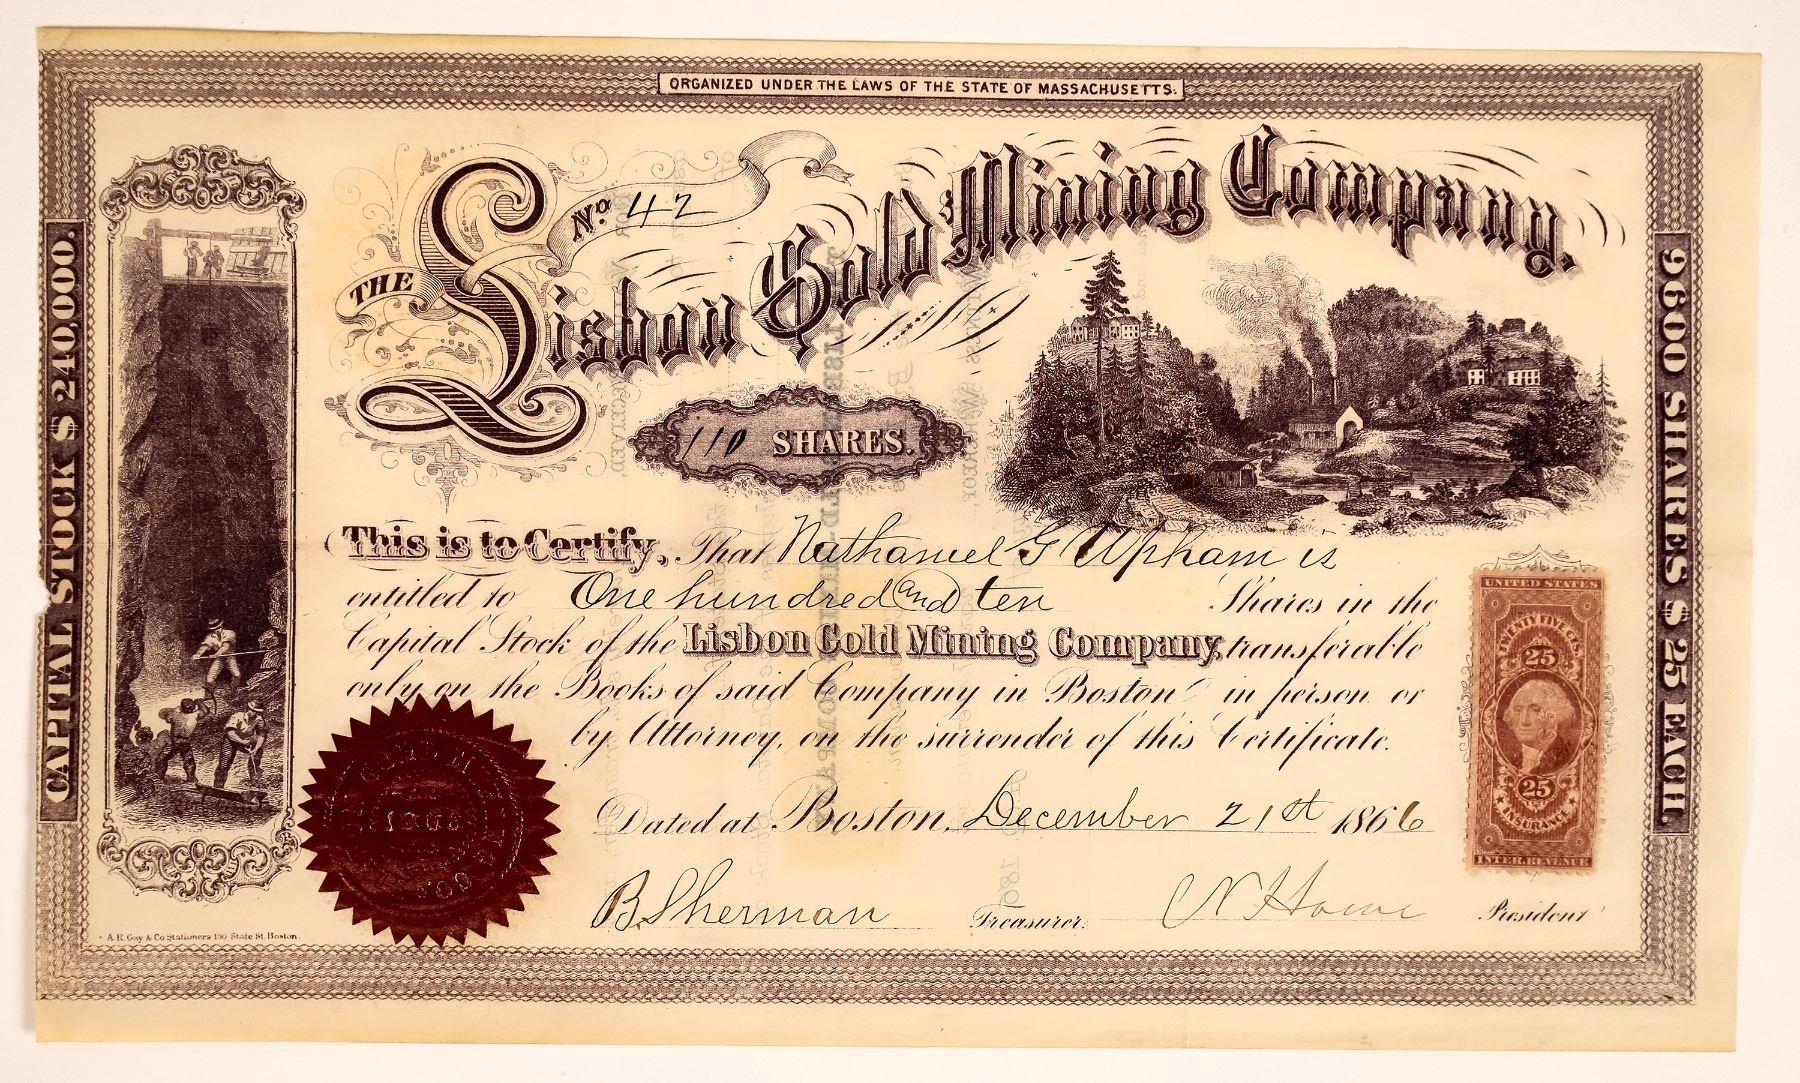 ORGANIZED UNDER THE LAWS OF THE STATE OF MASSACHUSETTS.
No. 42
THE Lisbon Gold Mining Company.
110 SHARES.
CAPITAL STOCK $ 240,000.
9600 SHARES $ 25 EACH.
This is to Certify, That Nathaniel G Upham is
entitled to One hundred and ten Shares in the
Capital Stock of the Lisbon Gold Mining Company, transferable
only on the Books of said Company in Boston in person or
by Attorney, on the surrender of this Certificate.
Dated at Boston, December 21st 1866
B. Sherman Treasurer. N Howe President
UNITED STATES
TWENTY FIVE CTS.
25
25
INSURANCE
INTER. REVENUE
1866
A. R. Gay & Co. Stationers 130 State St. Boston.